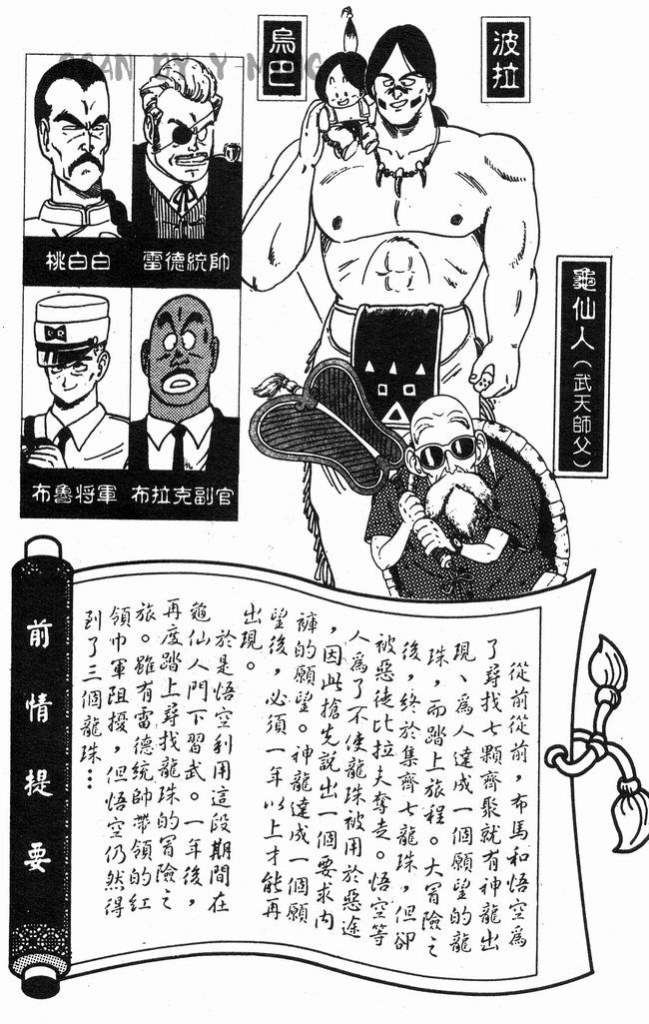 SCAN BY Y MING
波拉
烏巴
龜仙人(武天師父)
桃白白
雷德統帥
布魯將軍
布拉克副官
前情提要
從前從前，布馬和悟空爲
了尋找七顆齊聚就有神龍出
現、爲人達成一個願望的龍
珠，而踏上旅程。大冒險之
後，終於集齊七龍珠，但卻
被惡徒比拉夫奪走。悟空等
人爲了不使龍珠被用於惡途
，因此搶先說出一個要求內
褲的願望。神龍達成一個願
望後，必須一年以上才能再
出現。
於是悟空利用這段期間在
龜仙人門下習武。一年後，
再度踏上尋找龍珠的冒險之
旅。雖有雷德統帥帶領的紅
領巾軍阻擾，但悟空仍然得
到了三個龍珠…